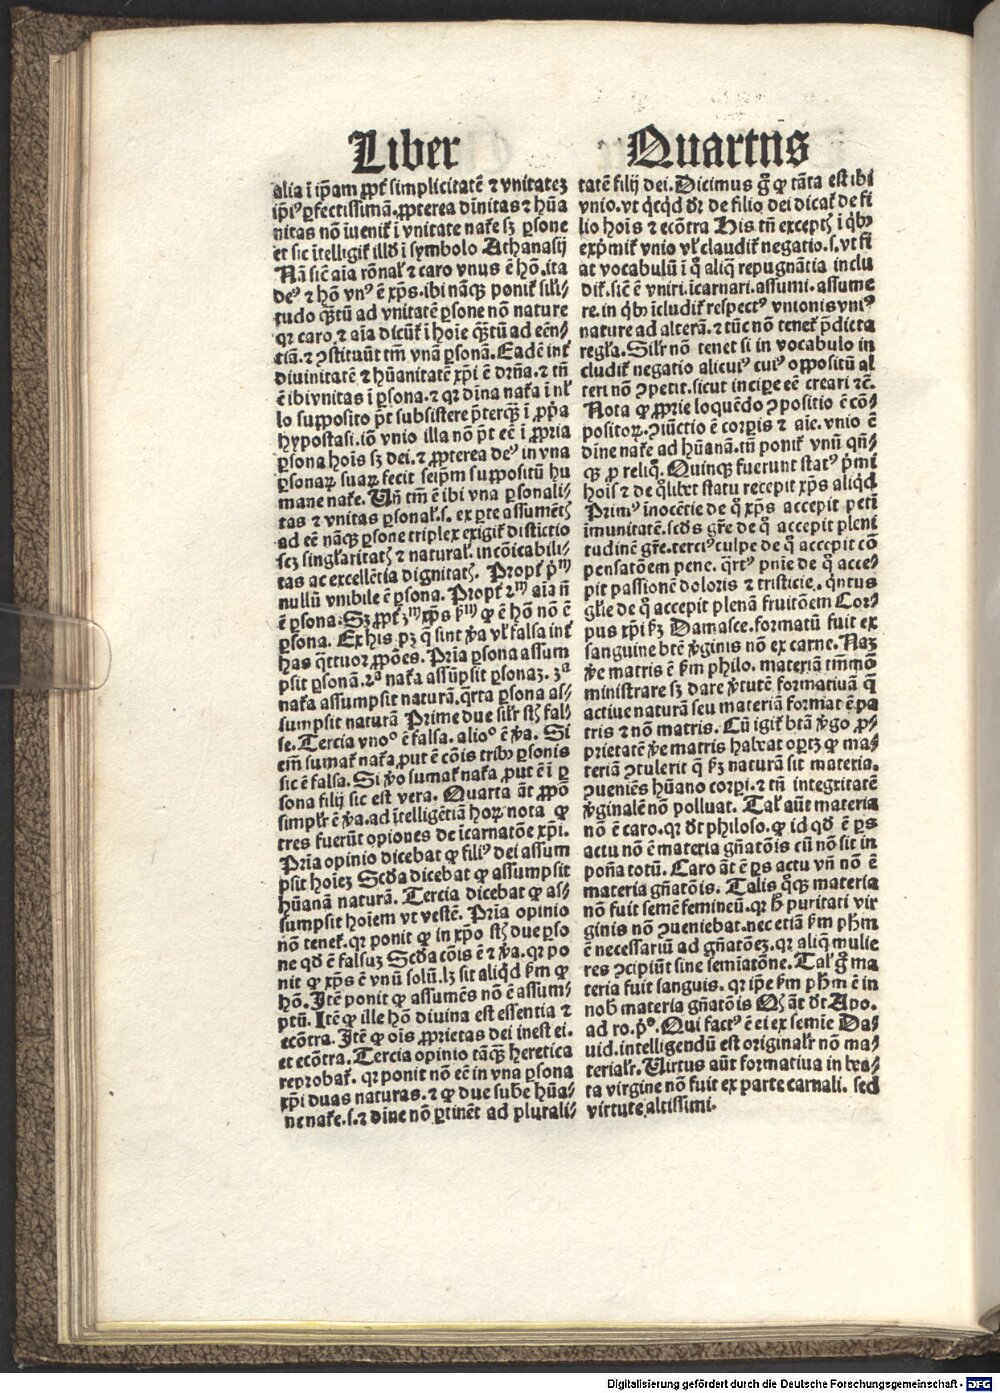 Liber Quartus
alia ī ip̄am ꝓpt̄ simplicitatē ⁊ vnitatez
ip̄iꝰ ꝑfectissimā. ꝓpterea dīnitas ⁊ hūa
nitas nō īuenit̄ ī vnitate nat̄e sꝫ ꝑsone
et sic ītelligit̄ illđ ī symbolo Athanasij
Nā sicē aīa rōnal̄ ⁊ caro vnus ē hō. ita
deꝰ ⁊ hō vnꝰ ē xp̄s. ibi nāqꝫ ponit̄ sil̄i-
tudo qꝫtū ad vnitatē ꝑsone nō nature
qꝛ caro ⁊ aīa dicūt̄ ī hoīe qꝫtū ad eēn-
tiā. ⁊ ꝯstituūt tm̄ vnā ꝑsonā. Eadē int̄
diuinitatē ⁊ hūanitatē xp̄i ē dr̄na. ⁊ tn̄
ē ibi vnitas ī ꝑsona. ⁊ qꝛ dīna nat̄a ī nl̄
lo supposito p̄t subsistere p̄terqꝫ ī ꝓp̄a
hypostasi. iō vnio illa nō p̄t eē ī ꝓpria
ꝑsona hoīs sꝫ dei. ⁊ ꝓpterea deꝰ in vna
ꝑsonaꝝ suaꝝ fecit seip̄m suppositū hu
mane nat̄e. Vn̄ tm̄ ē ibi vna ꝑsonali-
tas ⁊ vnitas ꝑsonal̄. s. ex ꝑte assumētꝭ
ad eē nāqꝫ ꝑsone triplex exigit̄ distictio
scꝫ singl̄aritatꝭ ⁊ natural̄. incōicabili-
tas ac excellētia dignitatꝭ. Propt̄ p̄m
nullū vnibile ē ꝑsona. Propt̄ 2m aīa n̄
ē ꝑsona. Sꝫ ꝓpt̄ 3m xp̄s ẜm ꝙ ē hō nō ē
ꝑsona. Ex his pꝫ q̄ sint v̄a vl̄ falsa int̄
has q̄ttuor ꝓpōes. Pr̄ia ꝑsona assum
psit ꝑsonā. 2a nat̄a assūpsit ꝑsonaꝫ. 3a
nat̄a assumpsit naturā. q̄rta ꝑsona as-
sumpsit naturā Prime due sil̄r st̄ꝭ fal-
se. Tercia vno° ē falsa. alio° ē v̄a. Si
em̄ sumat̄ nat̄a ꝓut ē cōis tribꝫ ꝑsonis
sic ē falsa. Si v̄o sumat̄ nat̄a ꝓut ē ī ꝑ
sona filij sic est vera. Quarta āt ꝓpō
simpl̄r ē v̄a. ad ītelligētiā hoꝝ nota ꝙ
tres fuerūt opiones de īcarnatōe xp̄i.
Pr̄ia opinio dicebat ꝙ filiꝰ dei assum
psit hoīeꝫ Scđa dicebat ꝙ assumpsit
hūanā naturā. Tercia dicebat ꝙ as-
sumpsit hoīem vt vestē. Pr̄ia opinio
nō tenet̄. qꝛ ponit ꝙ in xp̄o st̄ꝭ due ꝑso
ne qđ ē falsuꝫ Scđa cōis ē ⁊ v̄a. qꝛ po
nit ꝙ xp̄s ē vnū solū. lꝫ sit aliqđ ẜm ꝙ
hō. Itē ponit ꝙ assumēs nō ē assum-
ptū. Itē ꝙ ille hō diuina est essentia ⁊
ecōtra. Itē ꝙ oīs ꝓprietas dei inest ei.
et ecōtra. Tercia opinio tāqꝫ heretica
reprobat̄. qꝛ ponit nō eē in vna ꝑsona
xp̄i duas naturas. ⁊ ꝙ due sub̄e hūa-
ne nat̄e. s. ⁊ dīne nō ꝑtinēt ad plurali-
tatē filij dei. Dicimus g̊ ꝙ tāta est ibi
vnio. vt qͥcqđ dr̄ de filio dei dicat̄ de fi
lio hoīs ⁊ ecōtra His tn̄ exceptꝭ ī qͥbꝫ
exp̄mit̄ vnio vl̄ claudit̄ negatio. s. vt fi
at vocabulū ī q̊ aliq̄ repugnātia inclu
dit̄. sicē ē vniri. īcarnari. assumi. assume
re. in qͥbꝫ īcludit̄ respectꝰ vnionis vniꝰ
nature ad alterā. ⁊ tūc nō tenet̄ p̄dicta
regl̄a. Sil̄r nō tenet si in vocabulo in
cludit̄ negatio alicuiꝰ cuiꝰ oppositū al
teri nō ꝯpetit. sicut incipe eē creari ⁊c̄.
Nota ꝙ ꝓprie loquēdo ꝯpositio ē cō-
positoꝝ. ꝯiūctio ē corꝑis ⁊ aīe. vnio ē
dīne nat̄e ad hūanā. tn̄ ponit̄ vnū qn̄-
qꝫ ꝓ reliq̊. Quinqꝫ fuerunt statꝰ p̄mi
hoīs ⁊ de qͦlibet statu recepit xp̄s aliqđ
Primꝰ inocētie de q̊ xp̄s accepit peti
imunitatē. scđs gr̄e de q̊ accepit pleni
tudinē gr̄e. terciꝰ culpe de q̊ accepit cō
pensatōem pene. q̄rtꝰ pnīe de q̊ acce-
pit passionē doloris ⁊ tristicie. qͥntus
gl̄ie de q̊ accepit plenā fruitōem Cor-
pus xp̄i ẜꝫ Damasce. formatū fuit ex
sanguine btē v̄ginis nō ex carne. Naꝫ
v̄e matris ē ẜm philo. materiā tm̄mō
ministrare sꝫ dare v̄tutē formatiuā q̄
actiue naturā seu materiā format ē pa
tris ⁊ nō matris. Cū igit̄ btā v̄go ꝓ-
prietatē v̄e matris habeat oꝑtꝫ ꝙ ma-
teriā ꝯtulerit q̄ ẜꝫ naturā sit materia.
ꝯueniēs hūano corꝑi. ⁊ tn̄ integritatē
v̄ginalē nō polluat. Tal̄ aūt materia
nō ē caro. qꝛ dt̄ philoso. ꝙ id qđ ē ꝑs
actu nō ē materia gn̄atōis cū nō sit in
pōna totū. Caro āt ē ꝑs actu vn̄ nō ē
materia gn̄atōis. Talis q̊qꝫ materia
nō fuit semē femineū. qꝛ h̄ puritati vir
ginis nō ꝯueniebat. nec etiā ẜm ph̄m
ē necessariū ad gn̄atōeꝫ. qꝛ aliq̄ mulie
res ꝯcipiūt sine semīatōne. Tal̄ g̊ ma
teria fuit sanguis. qꝛ ip̄e ẜm ph̄m ē in
nob̄ materia gn̄atōis Qđ āt dt̄ Apo.
ad ro. p̊. Qui factꝰ ē ei ex semīe Da-
uid. intelligendū est originalr̄ nō ma-
terialr̄. Virtus aūt formatiua in bea-
ta virgine nō fuit ex parte carnali. sed
virtute altissimi.
Digitalisierung gefördert durch die Deutsche Forschungsgemeinschaft - DFG